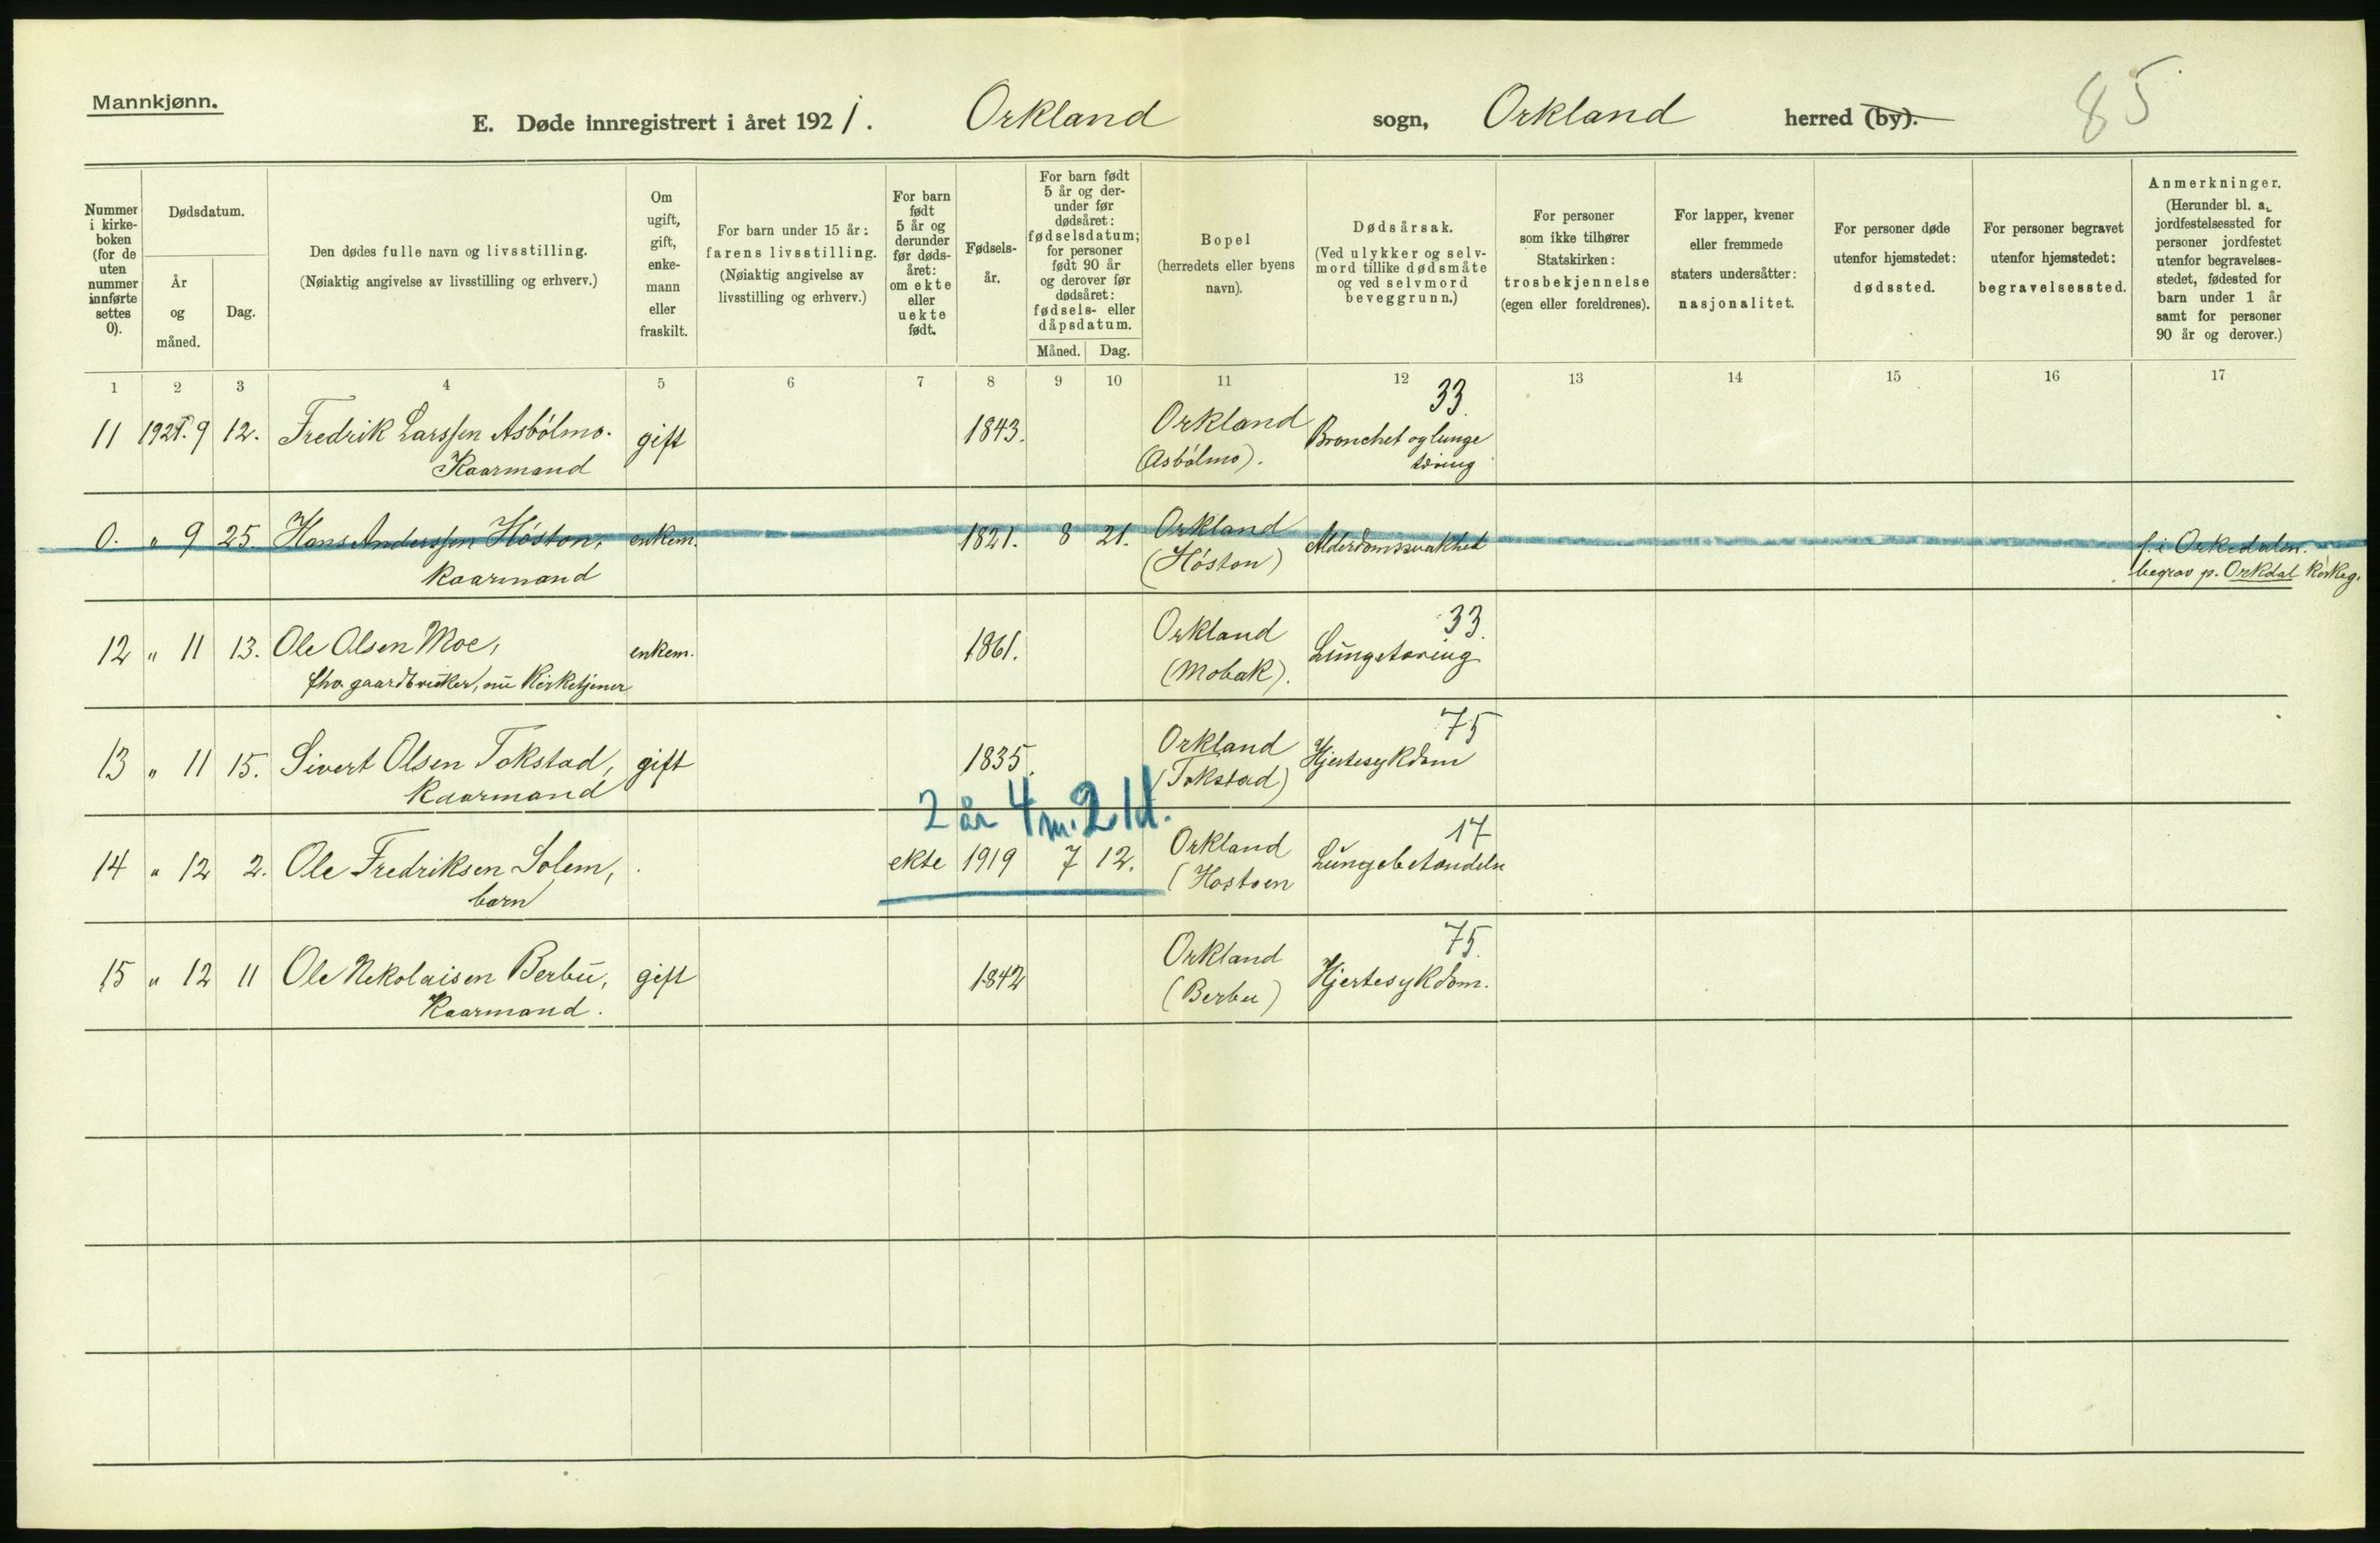 Mannkjønn.
E. Døde innregistrert i året 1921. Orkland sogn, Orkland herred (by).
85
Nummer i kirkeboken (for de uten nummer innførte settes 0).
Dødsdatum.
År og måned.
Dag.
Den dødes fulle navn og livsstilling.
(Nøiaktig angivelse av livsstilling og erhverv.)
Om ugift, gift, enkemann eller fraskilt.
For barn under 15 år: farens livsstilling.
(Nøiaktig angivelse av livsstilling og erhverv.)
For barn født 5 år og derunder før dødsåret: om ekte eller uekte født.
Fødselsår.
For barn født 5 år og derunder før dødsåret: fødselsdatum; for personer født 90 år og derover før dødsåret: fødsels- eller dåpsdatum.
Måned. Dag.
Bopel
(herredets eller byens navn).
Dødsårsak.
(Ved ulykker og selvmord tillike dødsmåte og ved selvmord beveggrunn.)
For personer som ikke tilhører Statskirken: trosbekjennelse (egen eller foreldrenes).
For lapper, kvener eller fremmede staters undersåtter: nasjonalitet.
For personer døde utenfor hjemstedet: dødssted.
For personer begravet utenfor hjemstedet: begravelsessted.
Anmerkninger.
(Herunder bl. a. jordfestelsessted for personer jordfestet utenfor begravelsesstedet, fødested for barn under 1 år samt for personer 90 år og derover.)
1 2 3 4 5 6 7 8 9 10 11 12 13 14 15 16 17
33.
11 1921. 9 12. Fredrik Larssen Asbólmo. gift 1843. Orkland Bronchet og lunge
Kaarmand (Asbólmo). tæring
0. " 9 25. Hans Anderssen Hóston, enkem. 1821. 8 21. Orkland Alderdomssvakhet f. i Orkedalen.
Kaarmand (Hóston) begrav p. Orkdal Kirkeg.
33.
12 " 11 13. Ole Olsen Moe, enkem. 1861. Orkland Lungetæring
fhv. gaardbruker, nu Kirketjener (Mobak).
75
13 " 11 15. Sivert Olsen Tokstad, gift 1835. Orkland Hjertesykdom
Kaarmand (Tokstad)
2 år 4 m. 21 d.
17
14 " 12 2. Ole Fredriksen Solem, ekte 1919 7 12. Orkland Lungebetændelse
barn (Hostoen
75.
15 " 12 11 Ole Nikolaisen Berbu, gift 1842 Orkland Hjertesykdom.
Kaarmand. (Berbu)